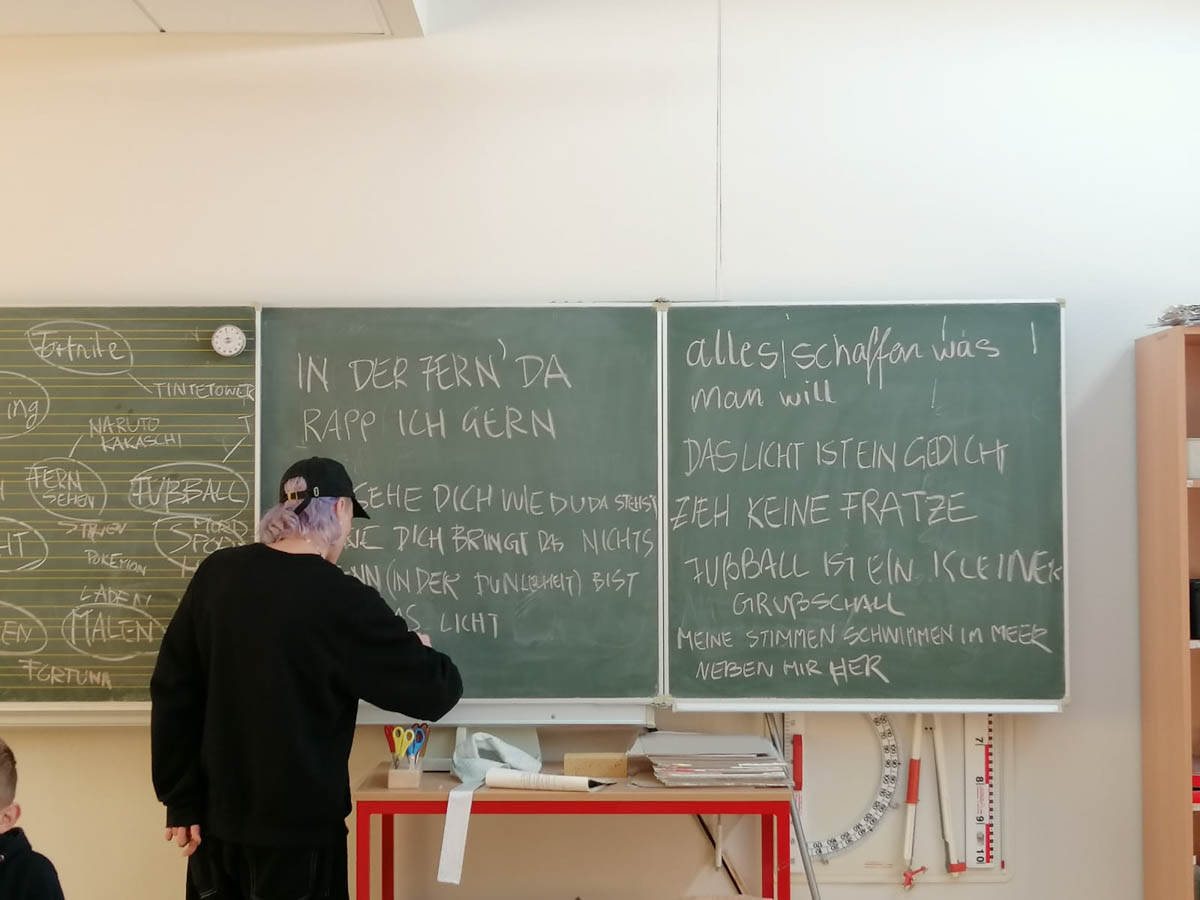 Fortnite
TINTETOWER
ing
NARUTO
KAKASCHI
T
FERN
SEHEN
FUßBALL
POKEMON
LADEN
EN
MALEN
FORTUNA
IN DER FERN' DA
RAPP ICH GERN
SEHE DICH WIE DU DA STEHST
DICH BRINGT DAS NICHTS
(IN DER DUNKELHEIT) BIST
LICHT
alles|schaffen was
man will
DAS LICHT IST EIN GEDICHT
ZIEH KEINE FRATZE
FUßBALL IST EIN KLEINER
GRUßSCHALL
MEINE STIMMEN SCHWIMMEN IM MEER
NEBEN MIR HER
7
8
9
10